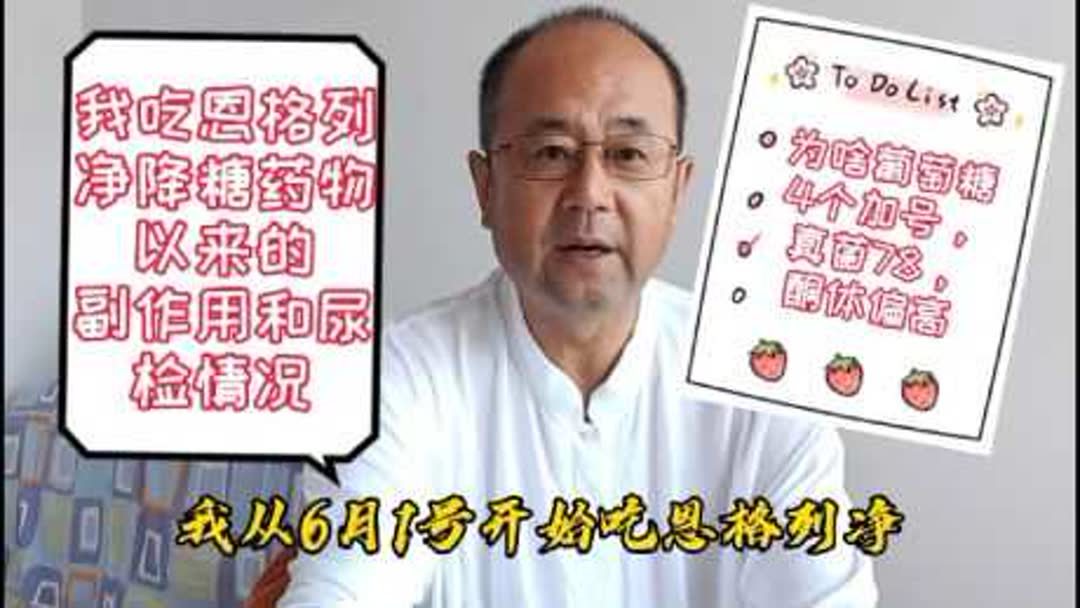 我吃恩格列
净降糖药物
以来的
副作用和尿
检情况
To Do List
为啥葡萄糖
4个加号，
真菌78，
酮体偏高
我从6月1号开始吃恩格列净